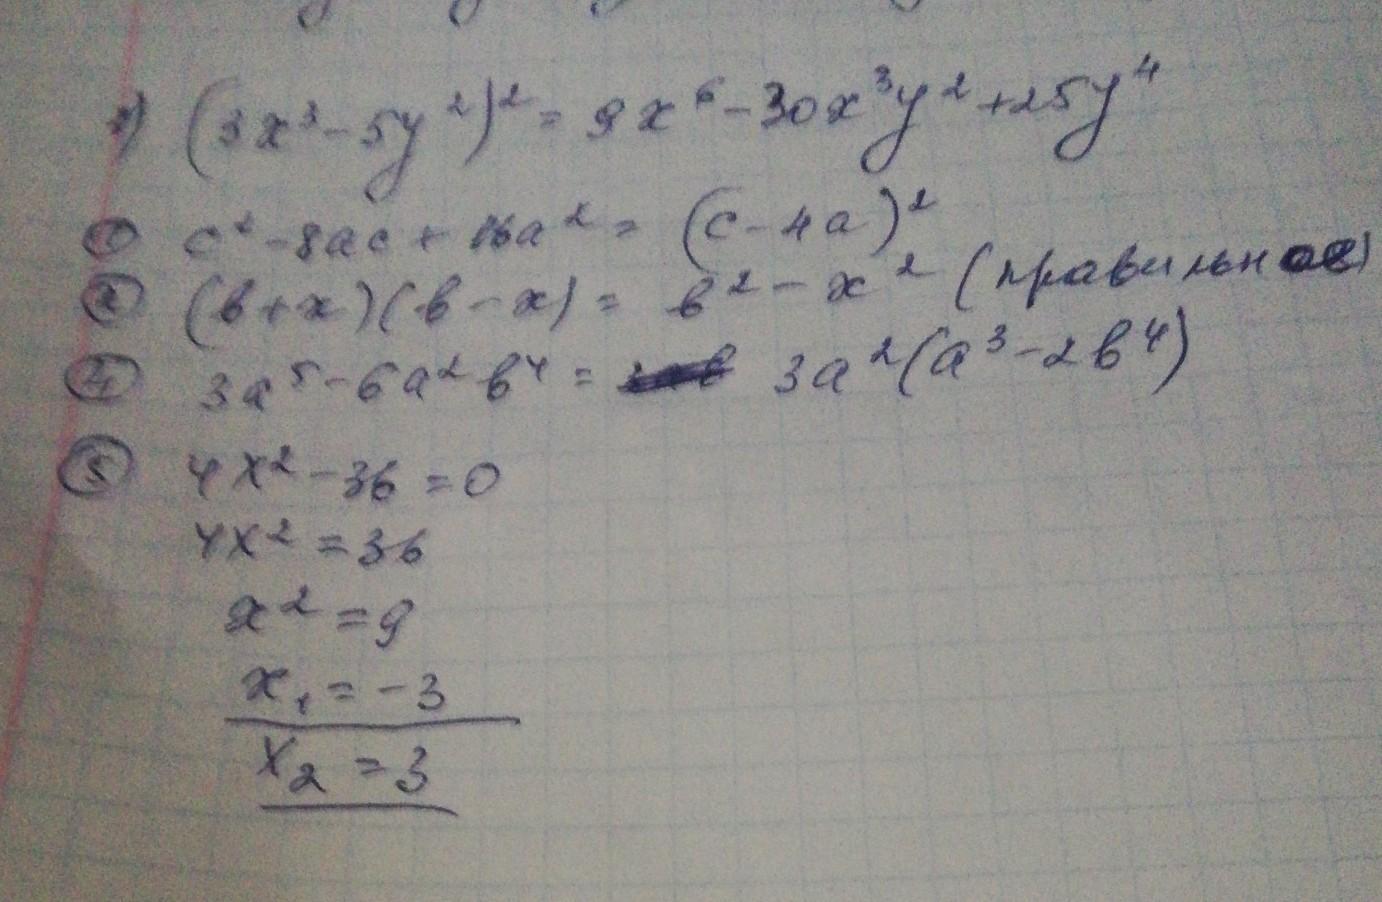 в) (3x³ - 5y²)² = 9x⁶ - 30x³y² + 25y⁴
① c² - 8ac + 16a² = (c - 4a)²
② (b + x)(b - x) = b² - x² (правильное)
④ 3a⁵ - 6a² b⁴ = 3a²(a³ - 2b⁴)
⑤ 4x² - 36 = 0
4x² = 36
x² = 9
x₁ = -3
x₂ = 3